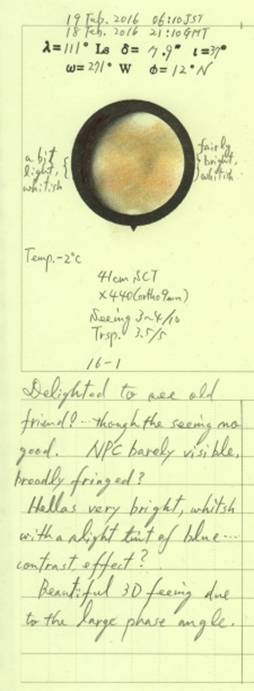 19 Feb. 2016 06:10 JST
18 Feb. 2016 21:10 GMT
λ=111° Ls δ= 7.9" ι=37°
ω=271° W φ=12°N
a bit light, whitish
fairly bright, whitish
Temp. -2°C
41cm SCT
×440 (ortho 9mm)
Seeing 3~4/10
Trsp. 3.5/5
16-1
Delighted to see old
friend? ... though the seeing no
good. NPC barely visible,
broadly fringed?
Hellas very bright, whitsh
with a slight tint of blue ...
contrast effect?
Beautiful 3D feeing due
to the large phase angle.